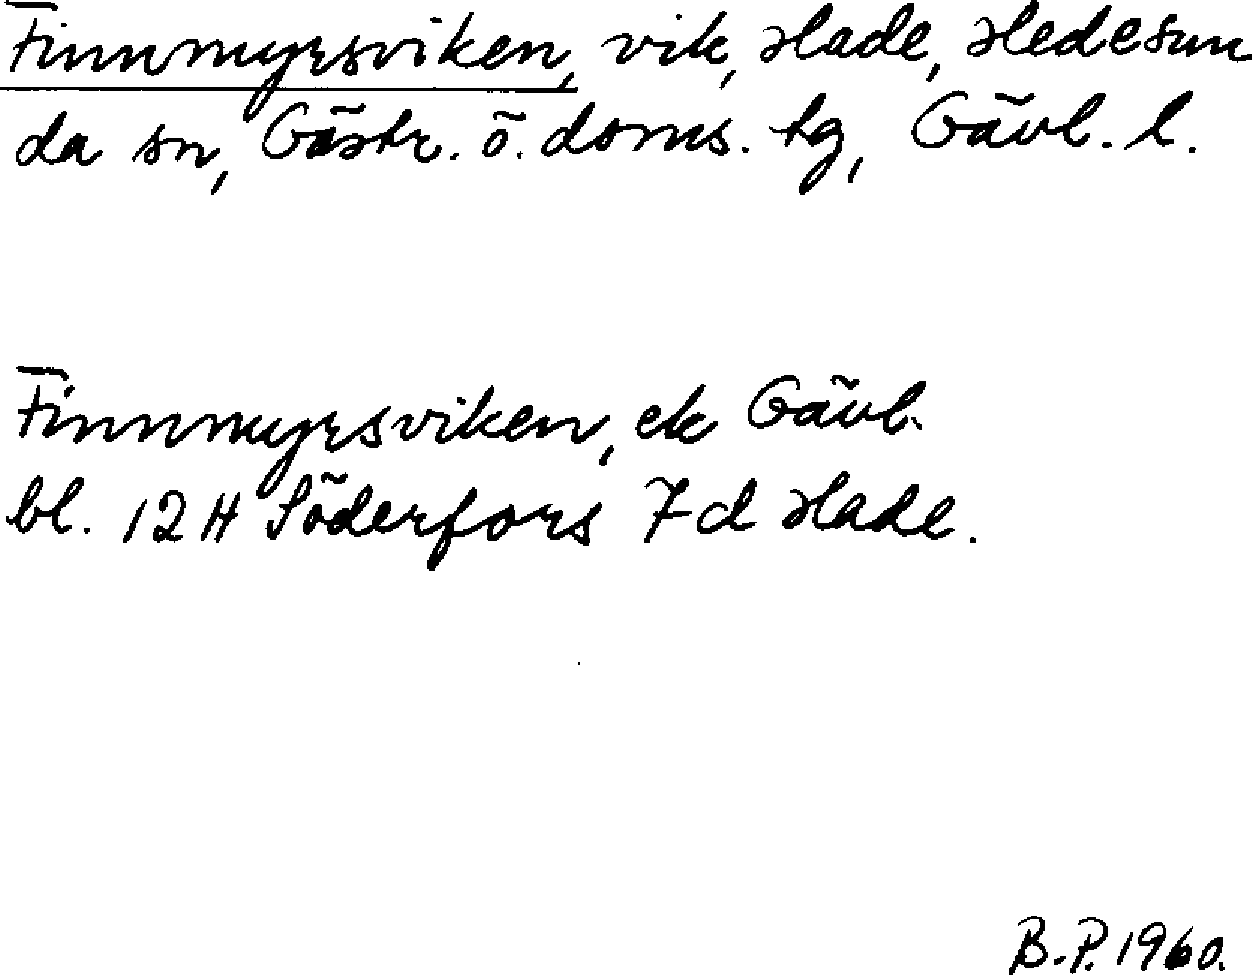 Finnmyrsviken, vik, Hade, Hedesun
da sn, Gästr. ö. doms. tg, Gävl. l.
Finnmyrsviken, ek Gävl.
bl. 12H Söderfors 7d Hade.
B.P. 1960.